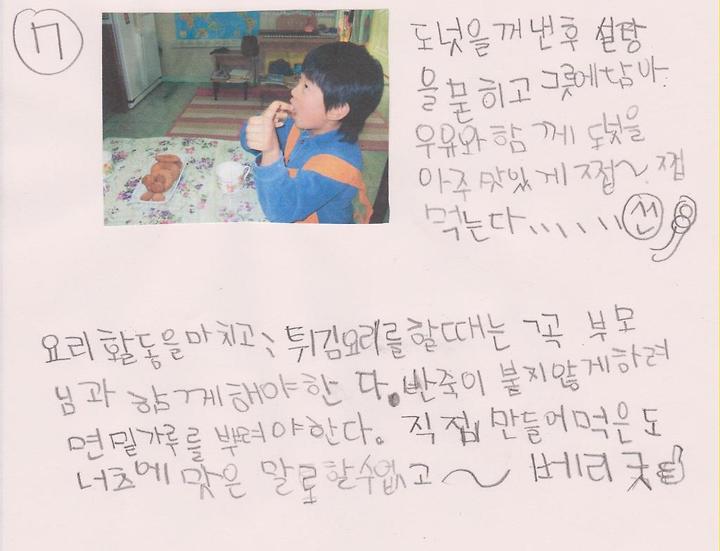 17
도넛을 꺼낸후 설탕
을 묻히고 그릇에담아.
우유와 함께 도넛을
아주 맛있게 쩝~쩝
먹는다、、、、、선
요리 활동을마치고; 튀김요리를 할때는 꼭 부모
님과 함께해야한 다.반죽이 붙지않게하려
면 밀가루를 뿌려야한다. 직접 만들어먹은도
너츠에 맛은 말로할수없고~ 베리굿